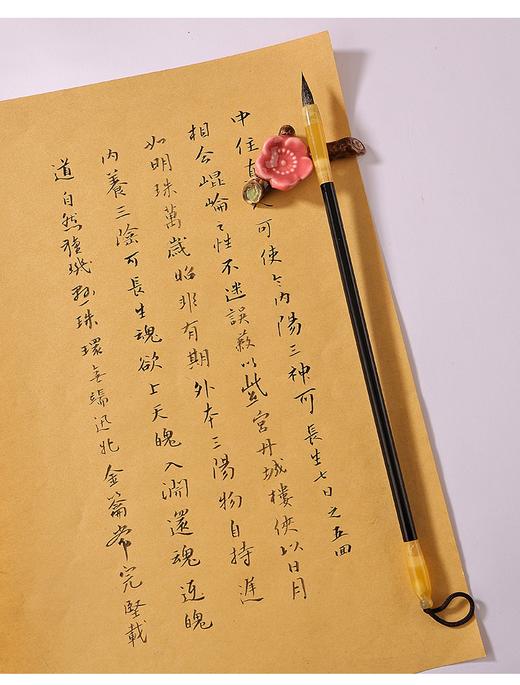 中住真可使令内陽三神可長生七日之五回
相合崐崘之性不迷誤蔽以紫宮丹城樓俠以日月
如明珠萬歲昭非有期外本三陽物自持進
内養三陰可長生魂欲上天魄入淵還魂返魄
道自然璇璣懸珠環無端迅牝金籥常完堅載